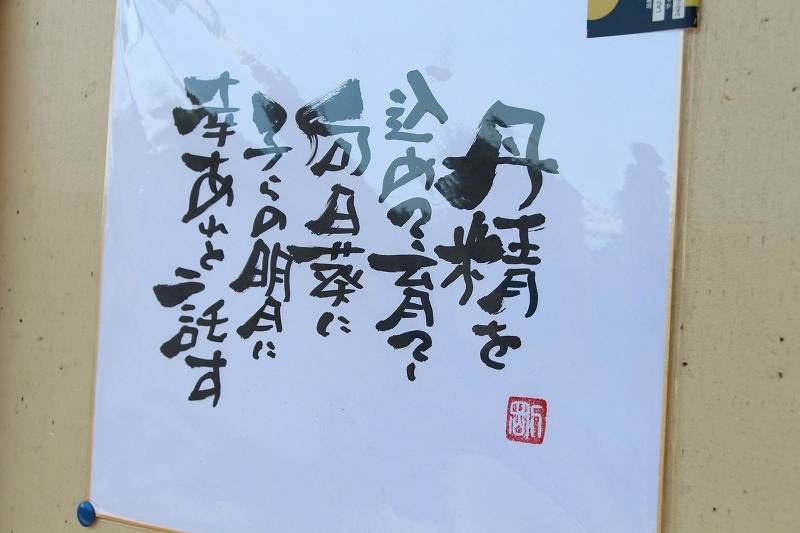 丹精を
込めて育てし
向日葵に
子らの明日に
幸あれと託す